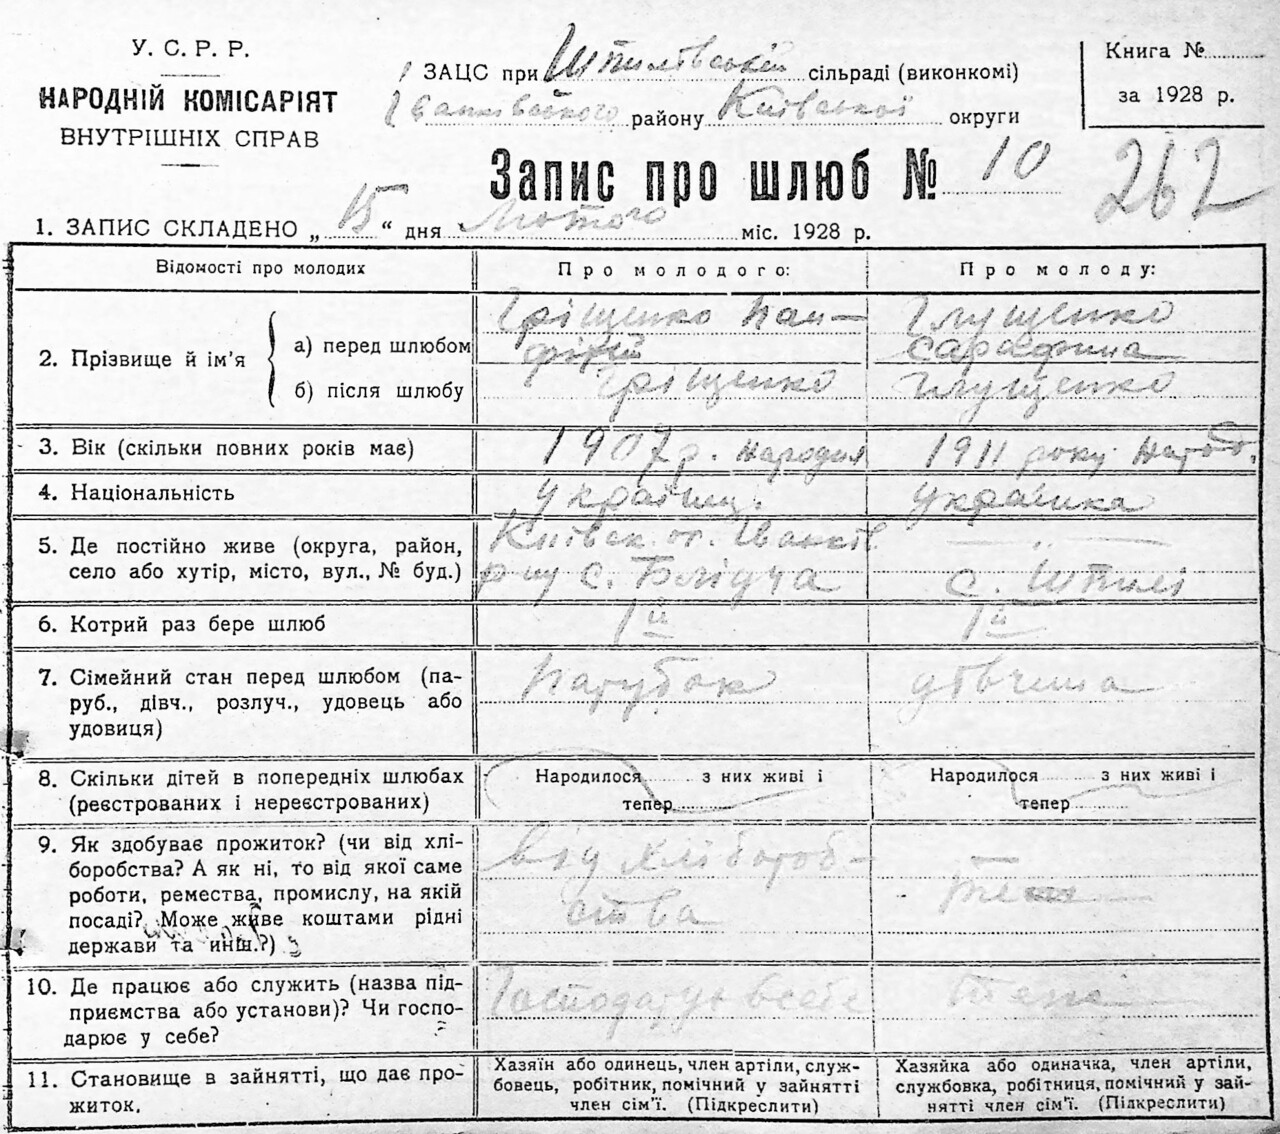 У. С. Р. Р.
НАРОДНІЙ КОМІСАРІЯТ
ВНУТРІШНІХ СПРАВ
ЗАЦС при Шпилівській сільраді (виконкомі)
Іванківського району Київської округи
Книга №
за 1928 р.
Запис про шлюб № 10
262
1. ЗАПИС СКЛАДЕНО „ 15 “ дня Лютого міс. 1928 р.
Відомості про молодих Про молодого: Про молоду:
2. Прізвище й ім'я
а) перед шлюбом Гріщенко Пан- Глущенко
Сарафина
б) після шлюбу Гріщенко Глущенко
3. Вік (скільки повних років має) 1907 р. народил 1911 року народ.
4. Національність українц. українка
5. Де постійно живе (округа, район, Київск. ок. Іванків — „ —
село або хутір, місто, вул., № буд.) р-ну с. Блідча с. Шпилі
6. Котрий раз бере шлюб 1й 1й
7. Сімейний стан перед шлюбом (па- Парубок дівчина
руб., дівч., розлуч., удовець або
удовиця)
8. Скільки дітей в попередніх шлюбах Народилося з них живі і Народилося з них живі і
(реєстрованих і нереєстрованих) тепер тепер
9. Як здобуває прожиток? (чи від хлі- Від хлібороб-
боробства? А як ні, то від якої саме ства
роботи, ремества, промислу, на якій
посаді? Може живе коштами рідні
держави та инш.?)
10. Де працює або служить (назва під- Господарує в себе
приємства або установи)? Чи госпо-
дарює у себе?
11. Становище в зайнятті, що дає про- Хазяїн або одинець, член артілі, служ- Хазяйка або одиначка, член артілі,
житок. бовець, робітник, помічний у зайнятті службовка, робітниця, помічний у зай-
член сім'ї. (Підкреслити) нятті член сім'ї. (Підкреслити)